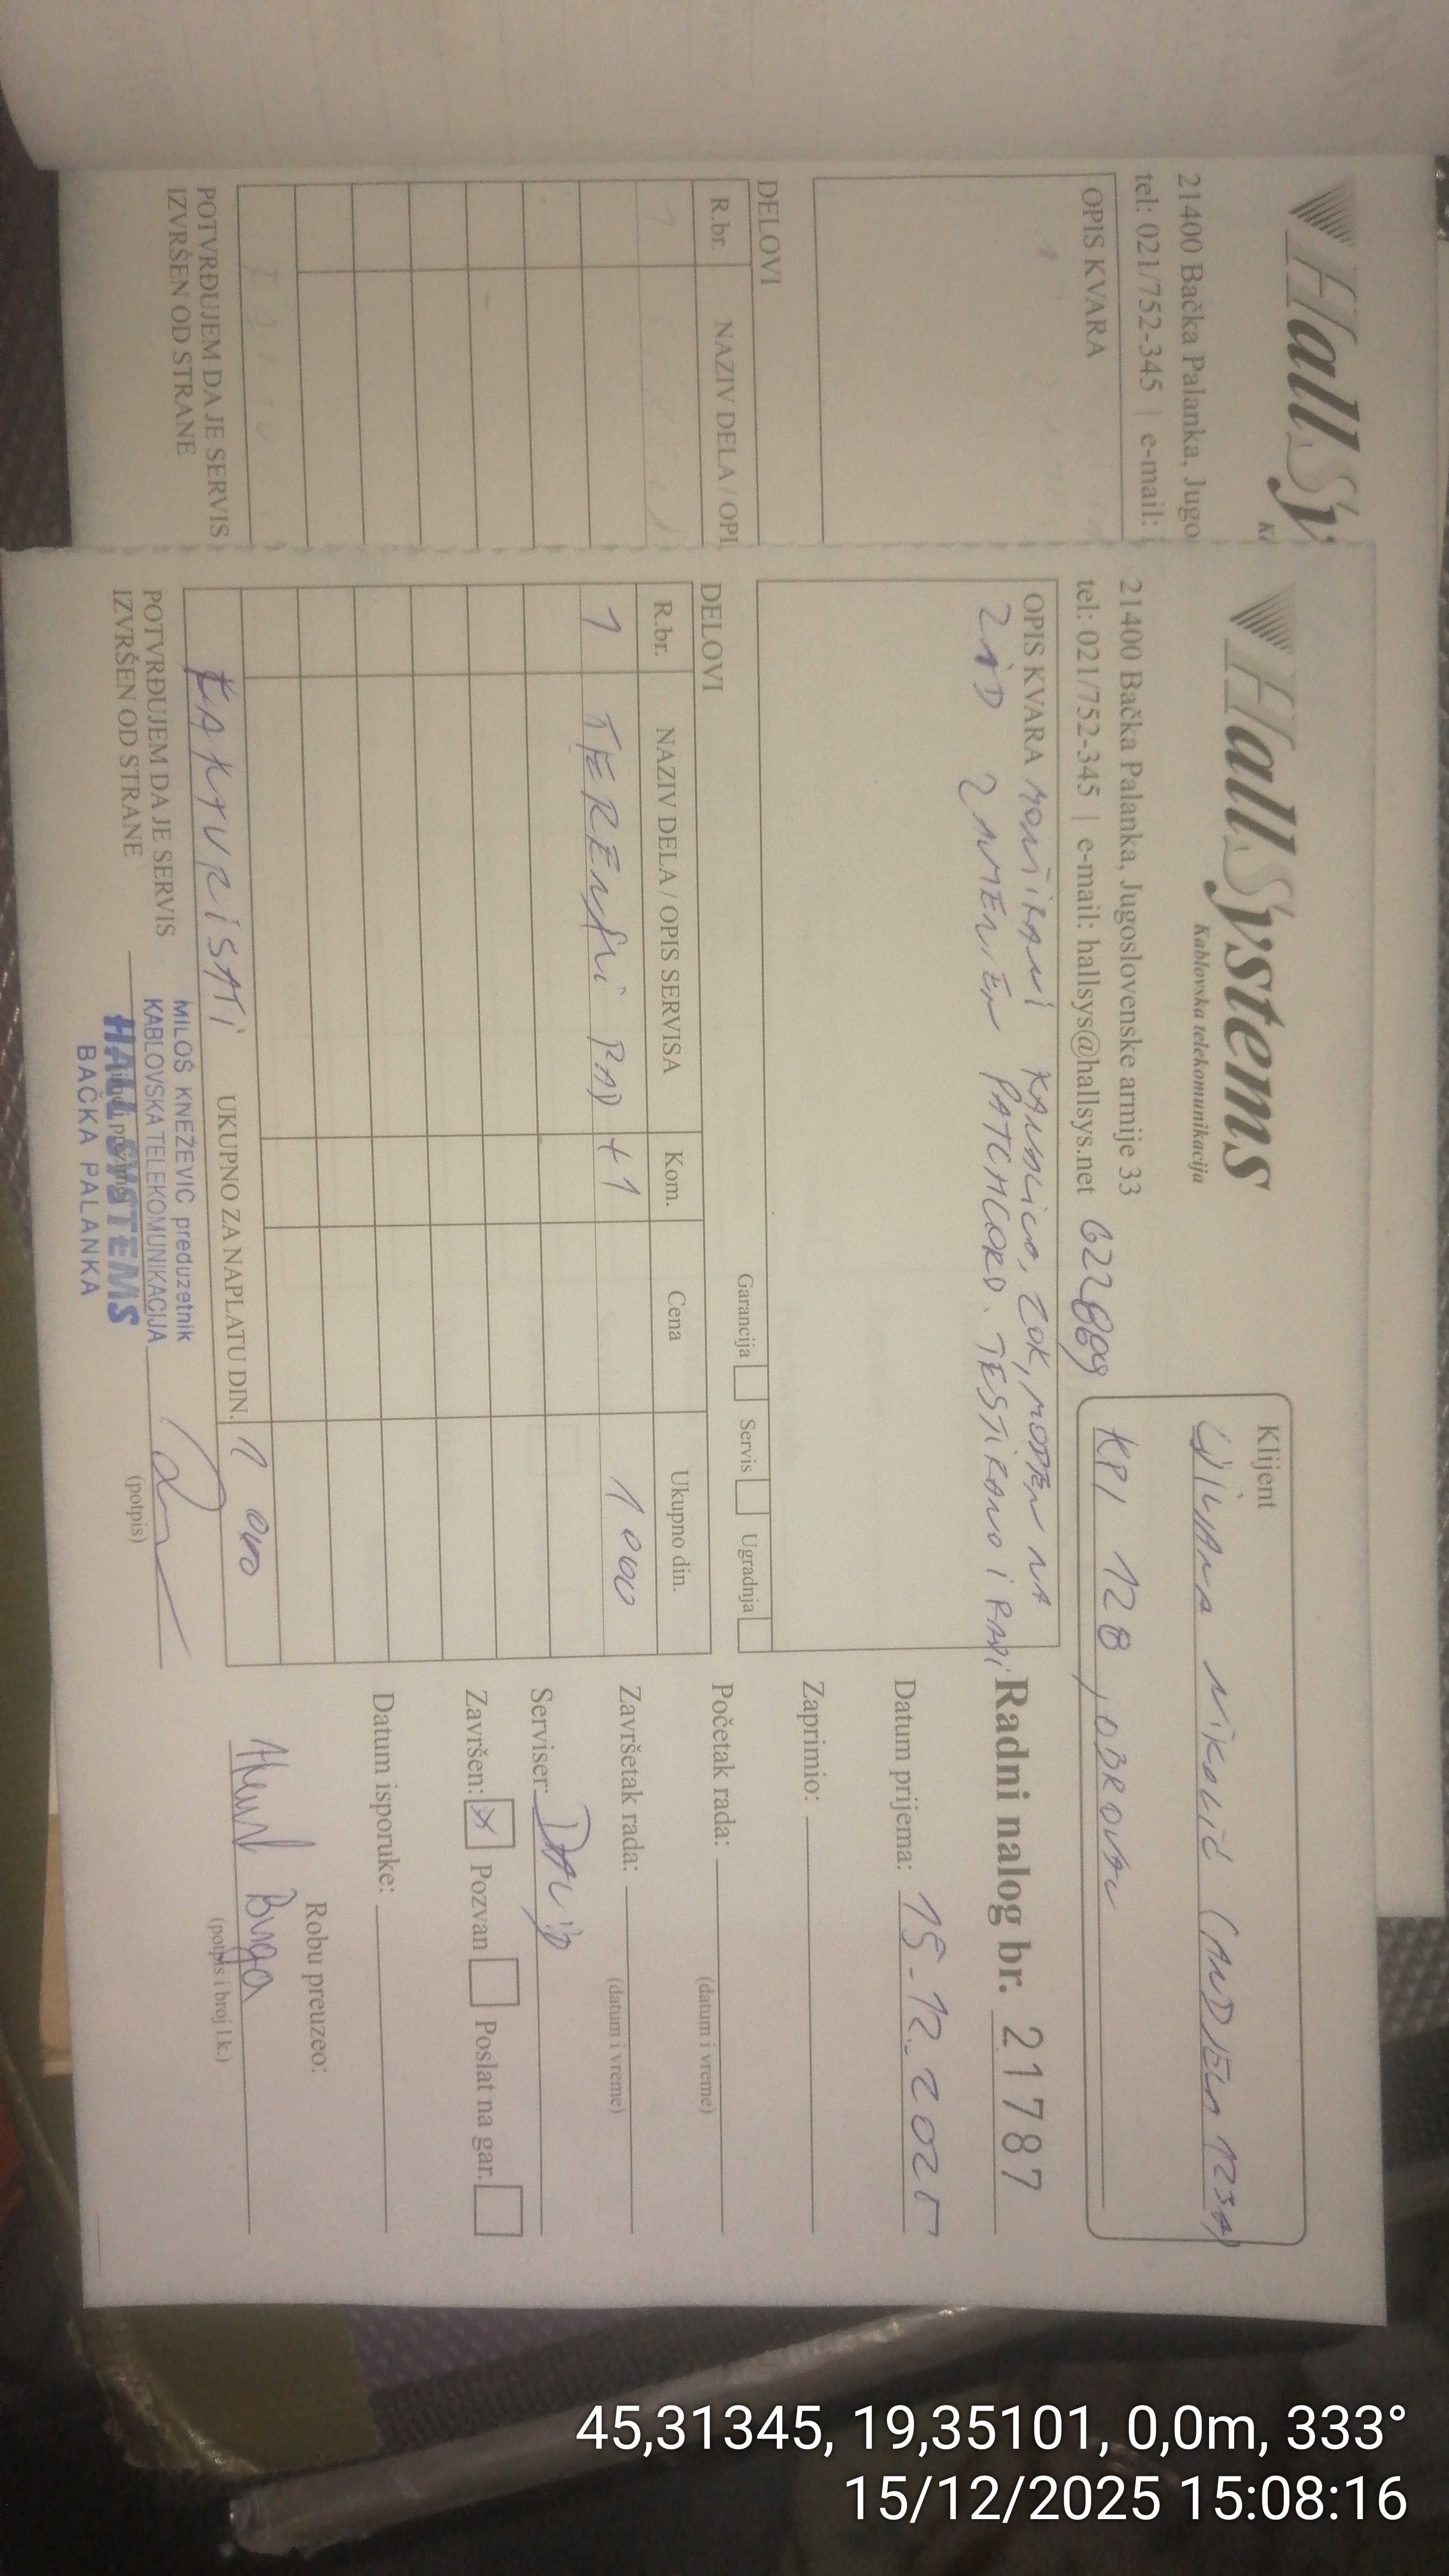 HallSy
21400 Bačka Palanka, Jugo
tel: 021/752-345 | e-mail:
OPIS KVARA
DELOVI
R.br. NAZIV DELA / OPI
POTVRĐUJEM DA JE SERVIS
IZVRŠEN OD STRANE
HallSystems
Kablovska telekomunikacija
21400 Bačka Palanka, Jugoslovenske armije 33
tel: 021/752-345 | e-mail: hallsys@hallsys.net
Klijent
NIKOLIĆ (ANDJELA 123A)
KPI 128, OBROVAC
OPIS KVARA MONTIRANI KANALICA, ZOK, MODEM NA
ZID ZAMENJEN PATCHCORD. TESTIRANO I RADI
Garancija Servis Ugradnja
DELOVI
R.br. NAZIV DELA / OPIS SERVISA Kom. Cena Ukupno din.
1 TERENSKI RAD +1 1000
FAKTURISATI UKUPNO ZA NAPLATU DIN. 1 000
POTVRĐUJEM DA JE SERVIS
IZVRŠEN OD STRANE
(potpis)
MILOŠ KNEŽEVIĆ preduzetnik
KABLOVSKA TELEKOMUNIKACIJA
HALL SYSTEMS
BAČKA PALANKA
Radni nalog br. 21787
Datum prijema: 15.12.2025
Zaprimio:
Početak rada:
(datum i vreme)
Završetak rada:
(datum i vreme)
Serviser: DAVID
Završen: X Pozvan Poslat na gar.
Datum isporuke:
Robu preuzeo:
(potpis i broj l.k.)
45,31345, 19,35101, 0,0m, 333°
15/12/2025 15:08:16